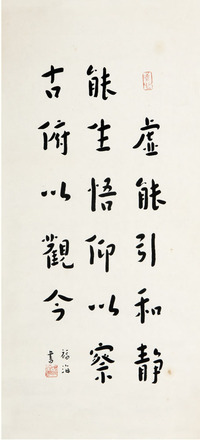 虛能引和靜
能生悟仰以察
古俯以觀今